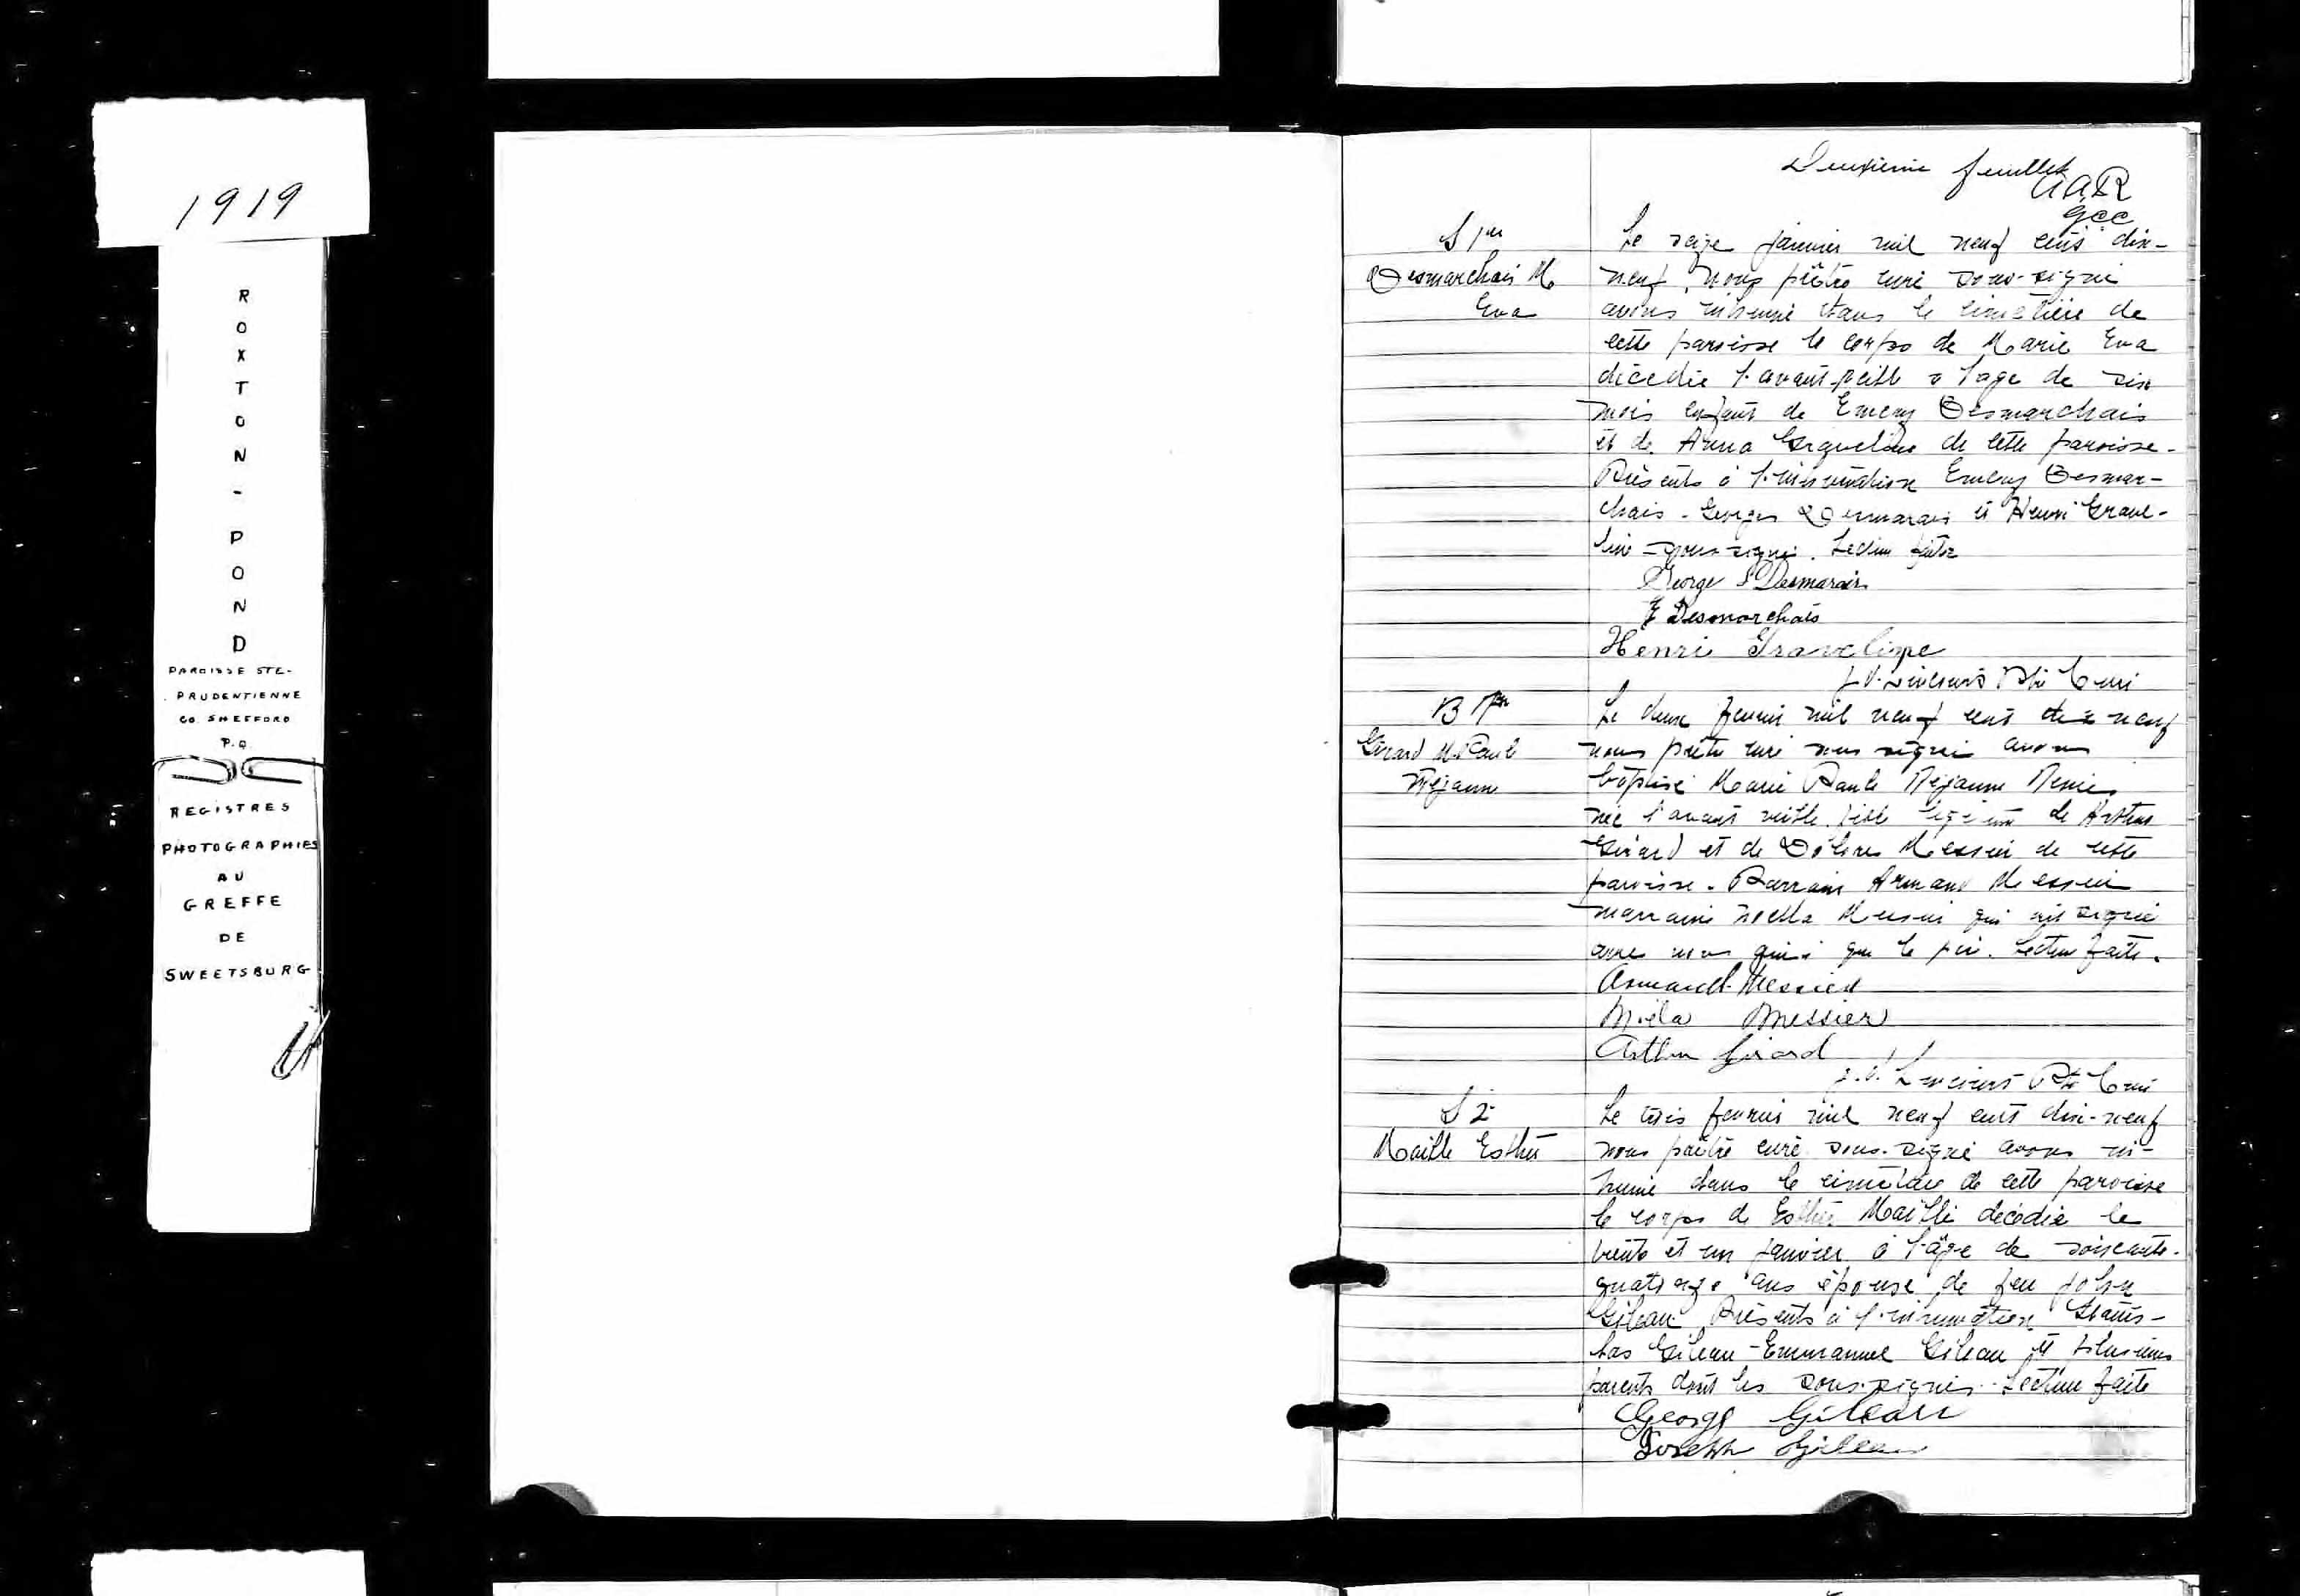 1919
ROXTON-POND
PAROISSE STE-
PRUDENTIENNE
CO. SHEFFORD
P.Q.
REGISTRES
PHOTOGRAPHIES
AU
GREFFE
DE
SWEETSBURG
Deuxième feuillet
A.A.R
S 1er
Desmarchais M
Eva
Le seize janvier mil neuf cent dix-
neuf, nous prêtre curé sous-signé
avons inhumé dans le cimetière de
cette paroisse le corps de Marie Eva
décédée l'avant-veille à l'age de six
mois enfant de Emery Desmarchais
et de Anna de cette paroisse.
Présents à l'inhumation Emery Desmar-
chais - Georges Desmarais et Henri Grave-
line sous-signés. Lecture faite
George Desmarais
E Desmarchais
Henri Graveline
Ptre Curé
B 1er
Girard M. Paule
Réjanne
Le deux février mil neuf cent dix neuf
nous prêtre curé sous signé avons
baptisé Marie Paule Réjanne
née l'avant veille fille légitime de Arthur
Girard et de Messier de cette
paroisse. Parrain Armand Messier
marraine Noella Messier qui ont signé
avec nous ainsi que le père. Lecture faite.
Armand Messier
Noëla Messier
Arthur Girard
Ptre Curé
S 2
Maille Esther
Le trois février mil neuf cent dix-neuf
nous prêtre curé sous-signé avons in-
humé dans le cimetière de cette paroisse
le corps de Esther Maille décédée le
trente et un janvier à l'âge de soixante-
quatorze ans épouse de feu John
Gileau. Présents à l'inhumation Stanis-
las Gileau - Emmanuel Gileau et plusieurs
parents dont les sous-signés. Lecture faite
George Gileau
Joseph Gileau